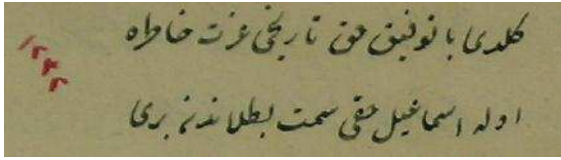 كلدى با توفيق حق تاريخى عزت خاطره
اوله اسماعيل حقى سمت بطلاندنه برى
١٢٣٢